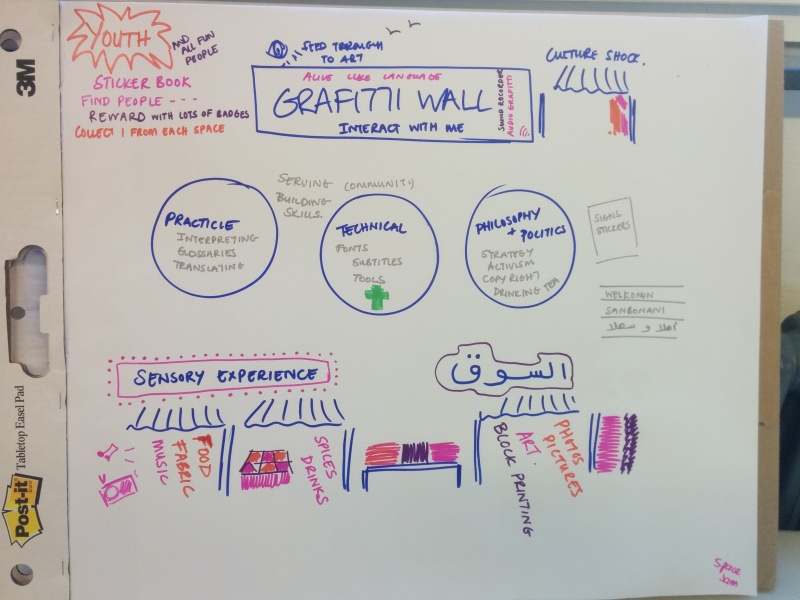 YOUTH
AND ALL FUN PEOPLE
STICKER BOOK
FIND PEOPLE ---
REWARD WITH LOTS OF BADGES
COLLECT 1 FROM EACH SPACE
FEED THROUGH
TO ART
ALIVE LIKE LANGUAGE
GRAFITTI WALL
INTERACT WITH ME
SOUND RECORDER
AUDIO GRAFITTI
CULTURE SHOCK.
SERVING COMMUNITY
BUILDING
SKILLS.
PRACTICLE
INTERPRETING
GLOSSARIES
TRANSLATING
TECHNICAL
FONTS
SUBTITLES
TOOLS
PHILOSOPHY
+ POLITICS
STRATEGY
ACTIVISM
COPYRIGHT
DRINKING TEA
SIGNS
STICKERS
WELKOMIN
SANBONANI
أهلا و سهلا
SENSORY EXPERIENCE
السوق
MUSIC
FABRIC
FOOD
SPICES
DRINKS
BLOCK PRINTING
ART.
PHOTOS
PICTURES
Space
Jam
3M
Post-it
Tabletop Easel Pad